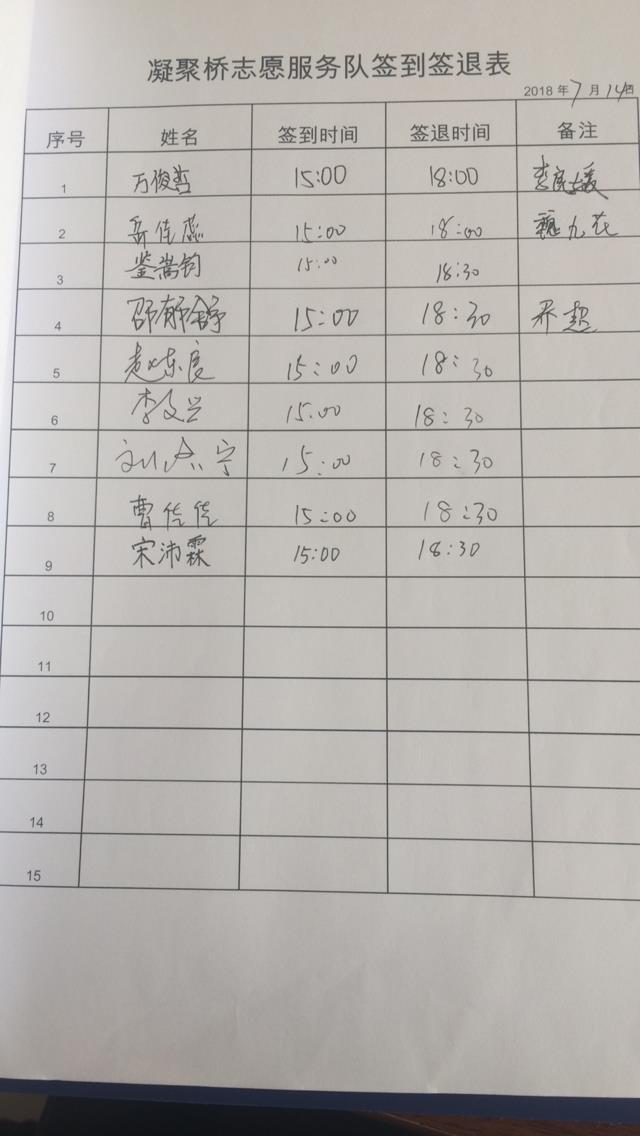 凝聚桥志愿服务队签到签退表
2018年7月14日
序号 姓名 签到时间 签退时间 备注
1 万俊哲 15:00 18:00
2 岳佳蕊 15:00 18:00 魏九花
3 鉴嵩钧 15:00 18:30
4 15:00 18:30 乔超
5 赵东良 15:00 18:30
6 李文兰 15:00 18:30
7 刘杰宁 15:00 18:30
8 曹佳佳 15:00 18:30
9 宋沛霖 15:00 18:30
10
11
12
13
14
15